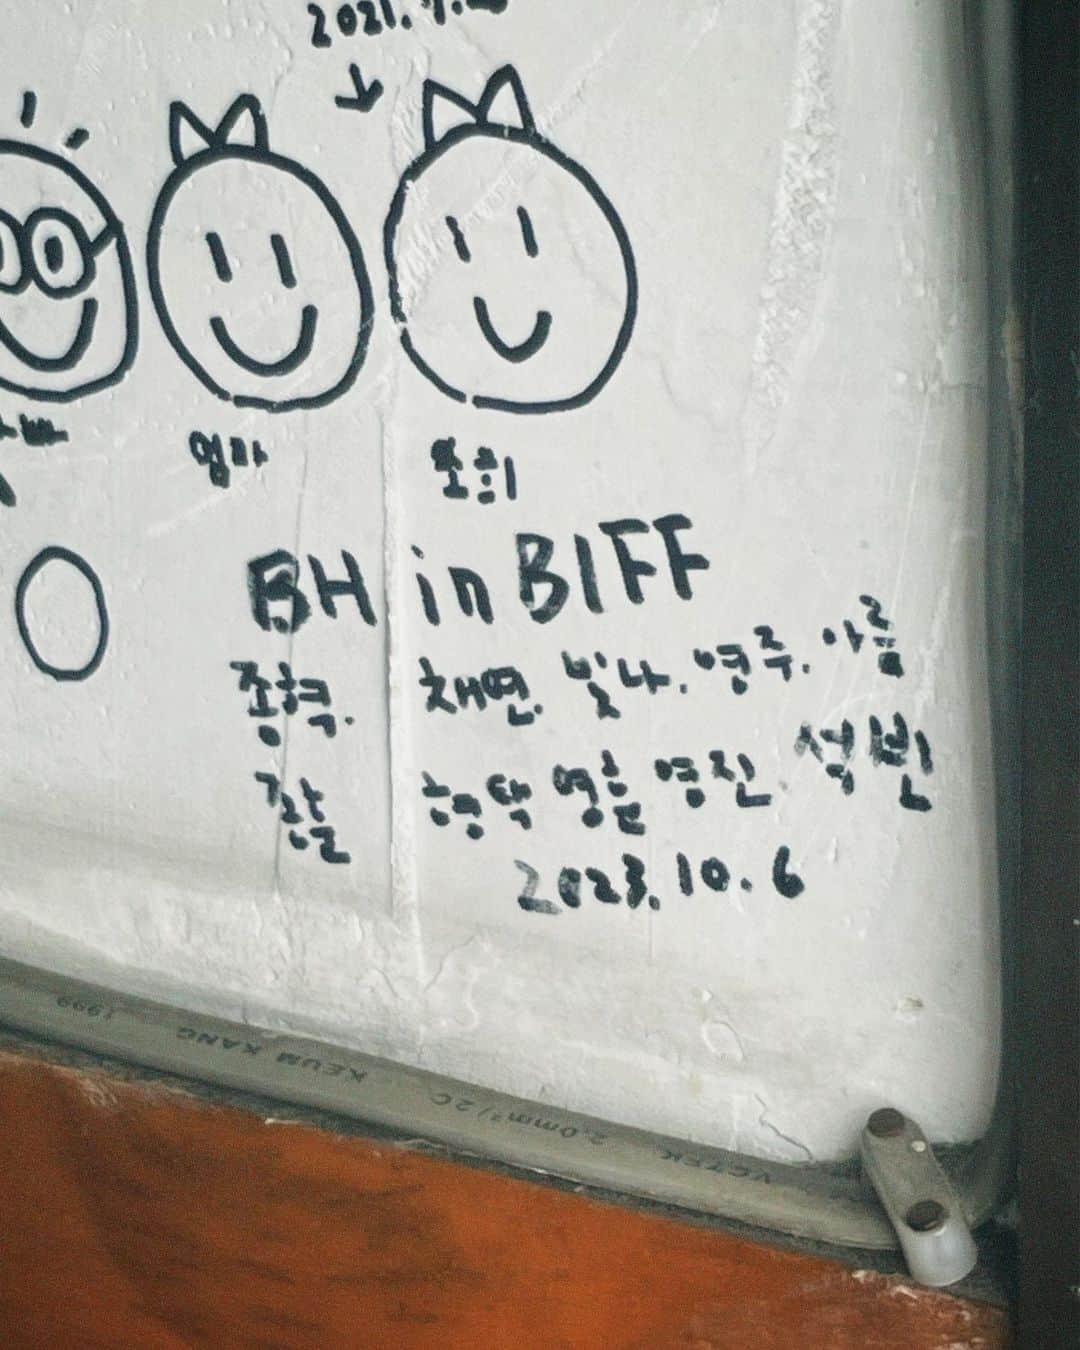 2021.
엄마
조희
BH in BIFF
종혁. 채연. 빛나. 영주. 아름
형탁 영흠 영진. 석빈
2023. 10. 6
1999
KEUM KANG
2.0mm²/2C
VCTFK